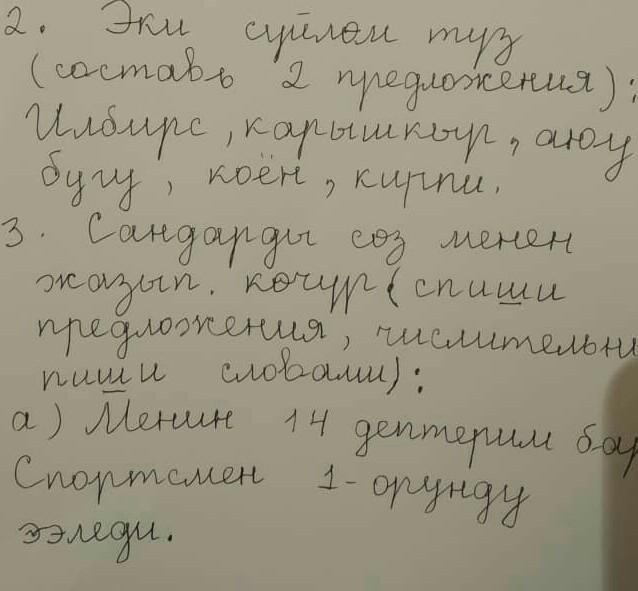 2. Эки сүйлөм түз
(составь 2 предложения):
Илбирс, карышкыр, аюу
бугу, коён, кирпи.
3. Сандарды соз менен
жазып. кочур (спиши
предложения, числительны
пиши словами):
а) Менин 14 дептерим бар
Спортсмен 1-орунду
ээледи.